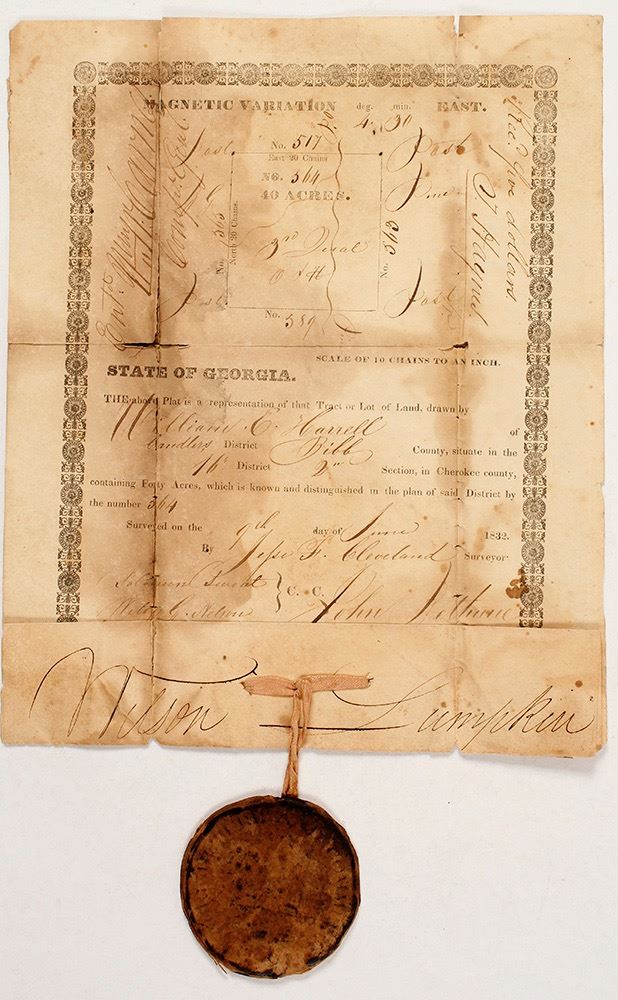 MAGNETIC VARIATION deg. min. EAST.
4 30
No. 517
East 20 Chains
Post
Post
No. 564
40 ACRES.
Pine
3rd Qual
No.
North 20 Chains.
No. 563
Post
Post
No. 589
Rec.d five dollars
SCALE OF 10 CHAINS TO AN INCH.
STATE OF GEORGIA.
THE above Plat is a representation of that Tract or Lot of Land, drawn by
William C. Harrell of
Candlers District Bibb County, situate in the
16th District 2nd Section, in Cherokee county,
containing Forty Acres, which is known and distinguished in the plan of said District by
the number 564
Surveyed on the 9th day of June 1832.
By Jesse F. Cleveland Surveyor
Solomon Sweat
C. C.
Nelson
John Bethune
Wilson Lumpkin